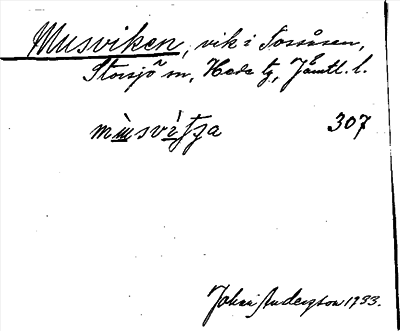 Musviken, vik i Tossåsen,
Storsjö sn, Hede tg, Jämtl. l.
mùsvìtja 307
Johan Andersson 1933.